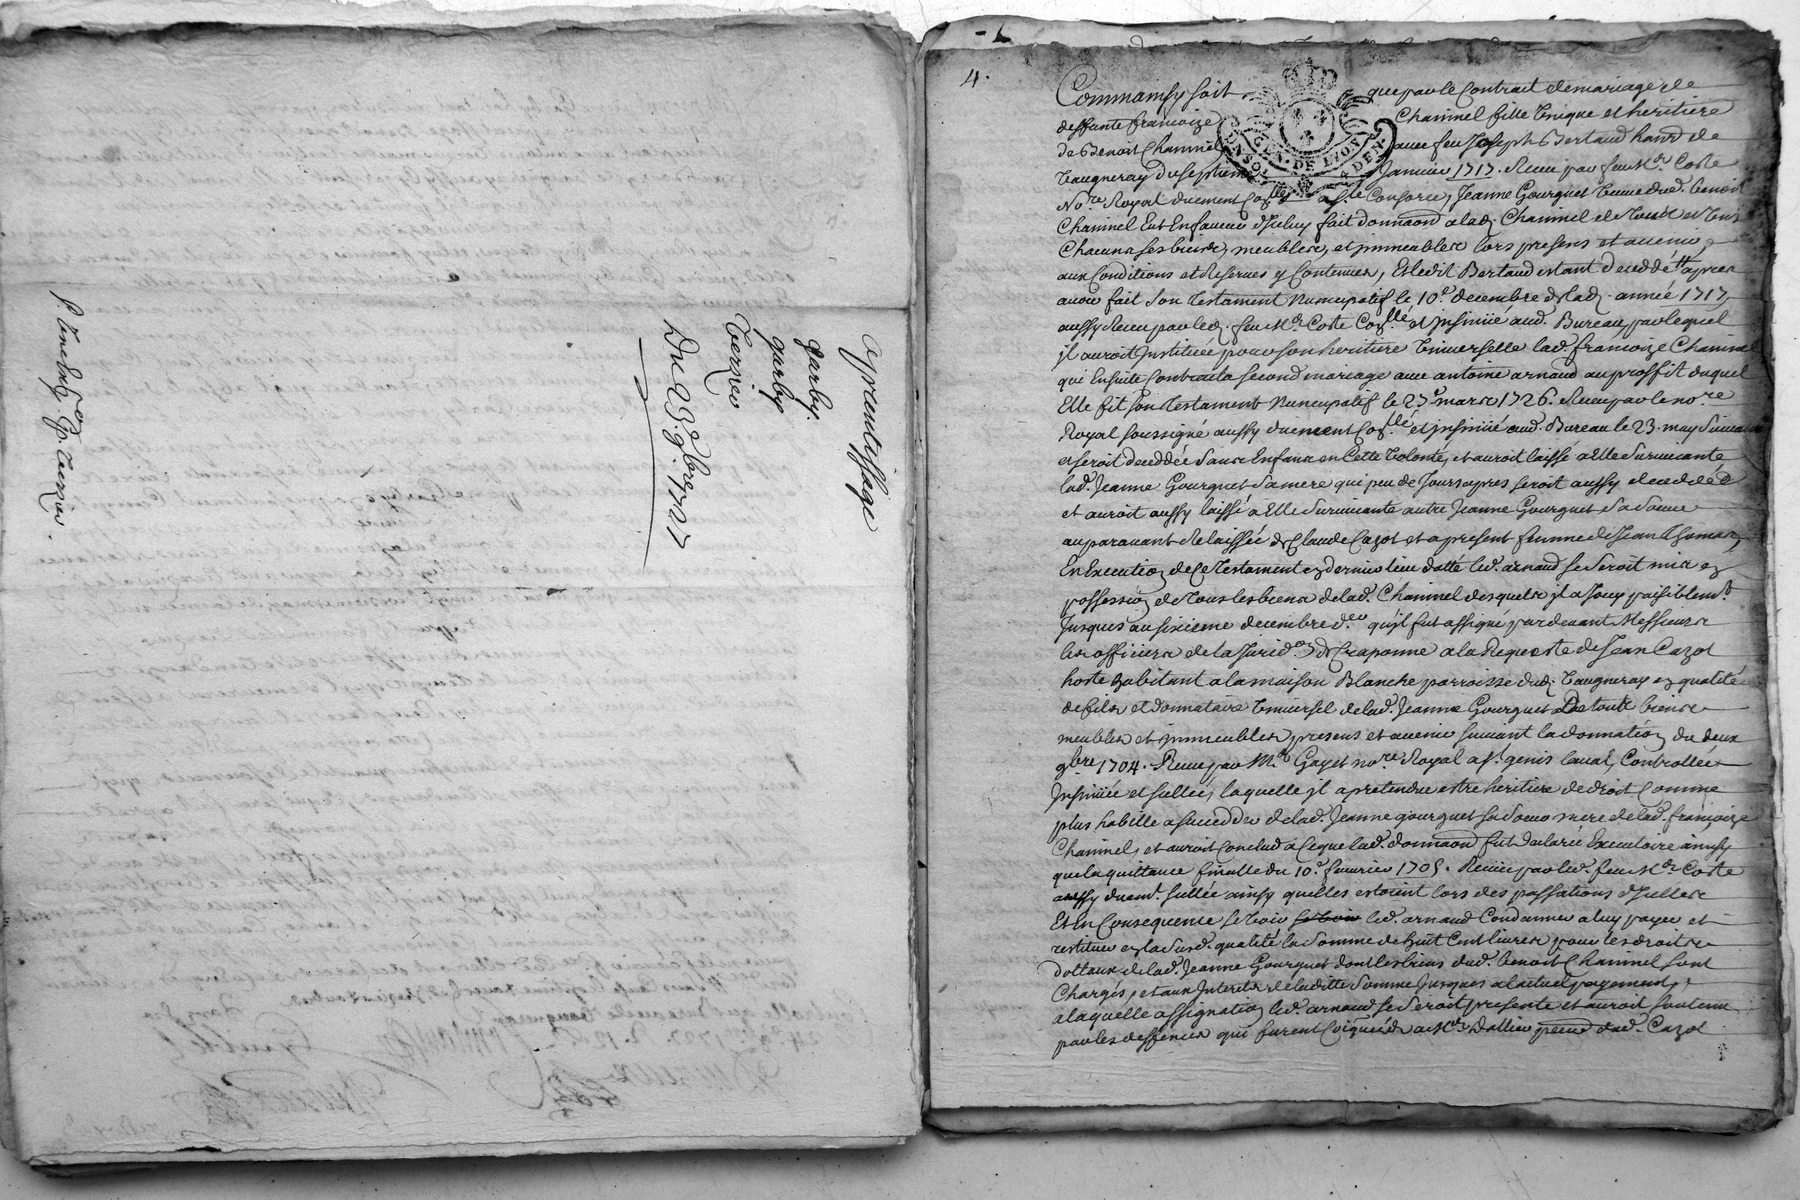 aprentissage
garby.
garby
Terrier
Du 23e 9bre 1727
Terrier
4.
Comme ainsy soit que par le Contrait de mariage de
deffunte francoize Chaminel fille Unique et heritiere
de Benoit Chaminel avec feu Joseph Bertaud habnt de
Vaugneray du septieme Janvier 1717. Receu par feu Me Coste
Nore Royal duement Conllé Jeanne Gourguet veuve dud. benoit
Chaminel Eut Enfaveur d'Iceluy fait donnaon a lad. Chaminel de tous et Uns
Chacuns ses biens, meubles, et jmmeubles lors presens et avenir,
aux Conditions et Reserves y Contenues, Et ledit Bertaud estant deceddé apres
avoir fait Son Testament Nuncupatif le 10e decembre de lad. année 1717,
aussy Receu par led. feu Me Coste Conllé et jnsinüé aud. Bureau, par lequel
jl auroit Justituée pour son heritiere Universelle lad. francoize Chaminel
qui Ensuite Contracta second mariage avec antoine arnaud au proffit duquel
Elle fit son Testament Nuncupatif le 27e mars 1726. Receu par le nore
Royal soussigné aussy duement Conllé et jnsinüé aud. Bureau le 23. may Suivant
et seroit deceddée sans Enfans en Cette Volonté, et auroit laissé a Elle Survivante
lad. Jeanne Gourguet Sa mere qui peu de Jours apres seroit aussy deceddée
et auroit aussy laissé a Elle Survivante autre Jeanne Gourguet Sa Soeur
auparavant delaissée de Claude Cazot et a present femme de Jean Thomas,
En Execution de Ce Testament en dernier lieu datté led. arnaud se Seroit mis en
possession de tous les biens de lad. Chaminel desquels jl a Jouy paisiblemt
Jusques au sixieme decembre der qu'il fut assigné pardevant Messieurs
les officiers de la Juridon de Craponne a la Requeste de Jean Cazot
hoste habitant a la maison Blanche parroisse dud. Vaugneray en qualité
de fils et donnataire Universel de lad. Jeanne Gourguet De touts biens
meubles et jmmeubles presens et avenir suivant la donnation du deux
9bre 1704. Receue par Me Gayet nore Royal a St genis laval, Controllée
Jnsinüée et scellée, laquelle jl a pretendue estre heritiere de droit Comme
plus habille a succedder de lad. Jeanne gourguet sa soeur mere de lad. françoize
Chaminel, et auroit Conclud a Ce que lad. donnaon fut declarée Executoire ainsy
que la quittance finalle du 10e fevrier 1705. Receüe par led. feu Me Coste
aussy duemt scellée ainsy quelles estoient lors des passations d'Icelles
Et En Consequence se voir led. arnaud Condamner a luy payer et
restituer en la Susd. qualité la Somme de huit Cent livres pour les droits
dottaux de lad. Jeanne Gourguet dont les biens dud. benoit Chaminel sont
Chargés, et aux Interets de laditte Somme Jusques a l'actuel payement,
a laquelle assignation led. arnaud se Seroit presenté et auroit soutenu
par les deffenses qui furent Coiquées a Me Dallier procur dud. Cazot